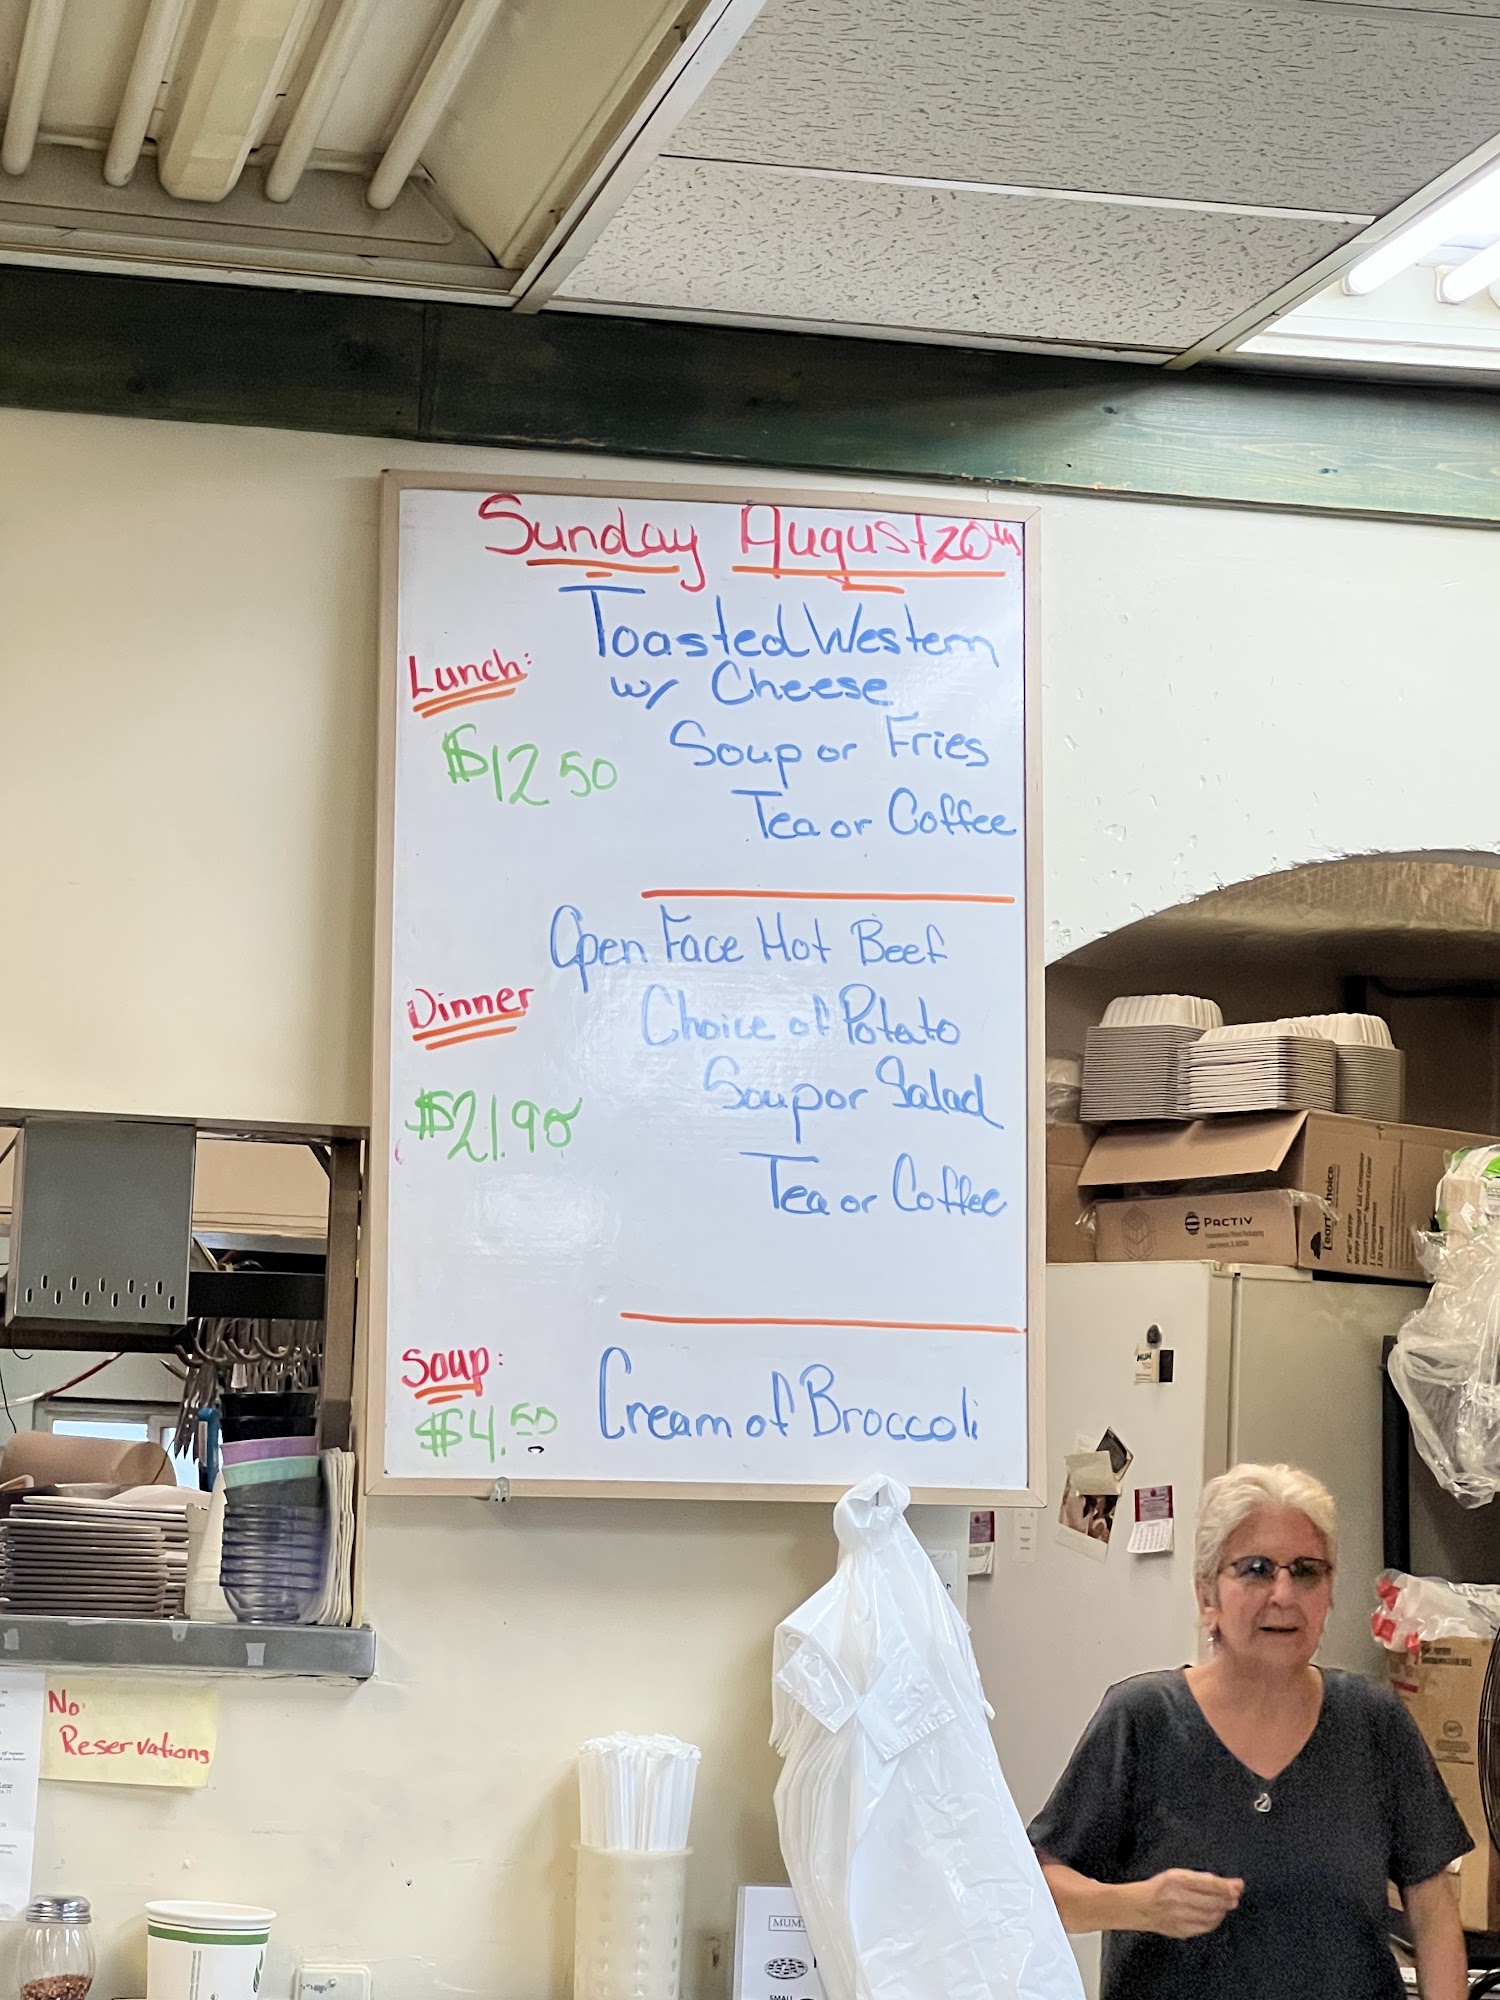 Sunday August 20th
Toasted Western
w/ Cheese
Lunch:
$12 50
Soup or Fries
Tea or Coffee
Open Face Hot Beef
Dinner
Choice of Potato
$21.95
Soup or Salad
Tea or Coffee
Soup:
$4.50
Cream of Broccoli
No
Reservations
PACTIV
Earthchoice
SMALL